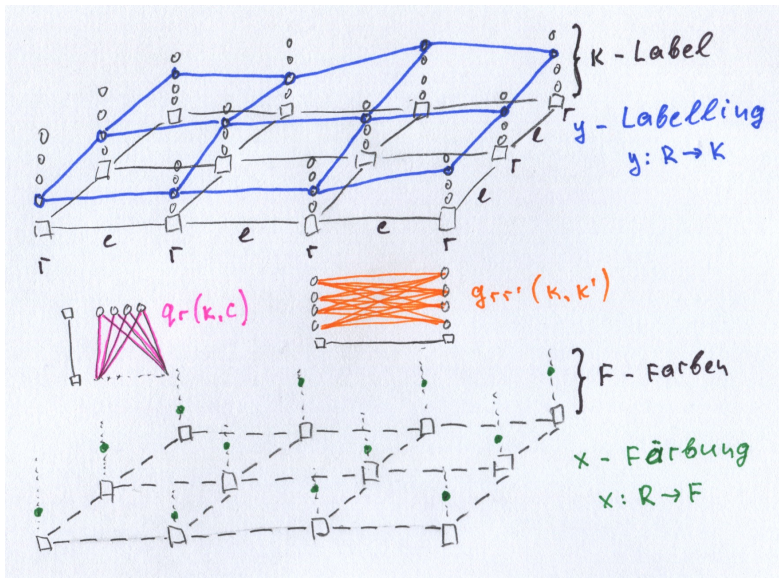 K - Label
y - Labelling
y: R → K
r
e
r
e
r
e
r
e
r
e
r
qr(K,C)
grr'(K,K')
F - Farben
x - Färbung
x: R → F